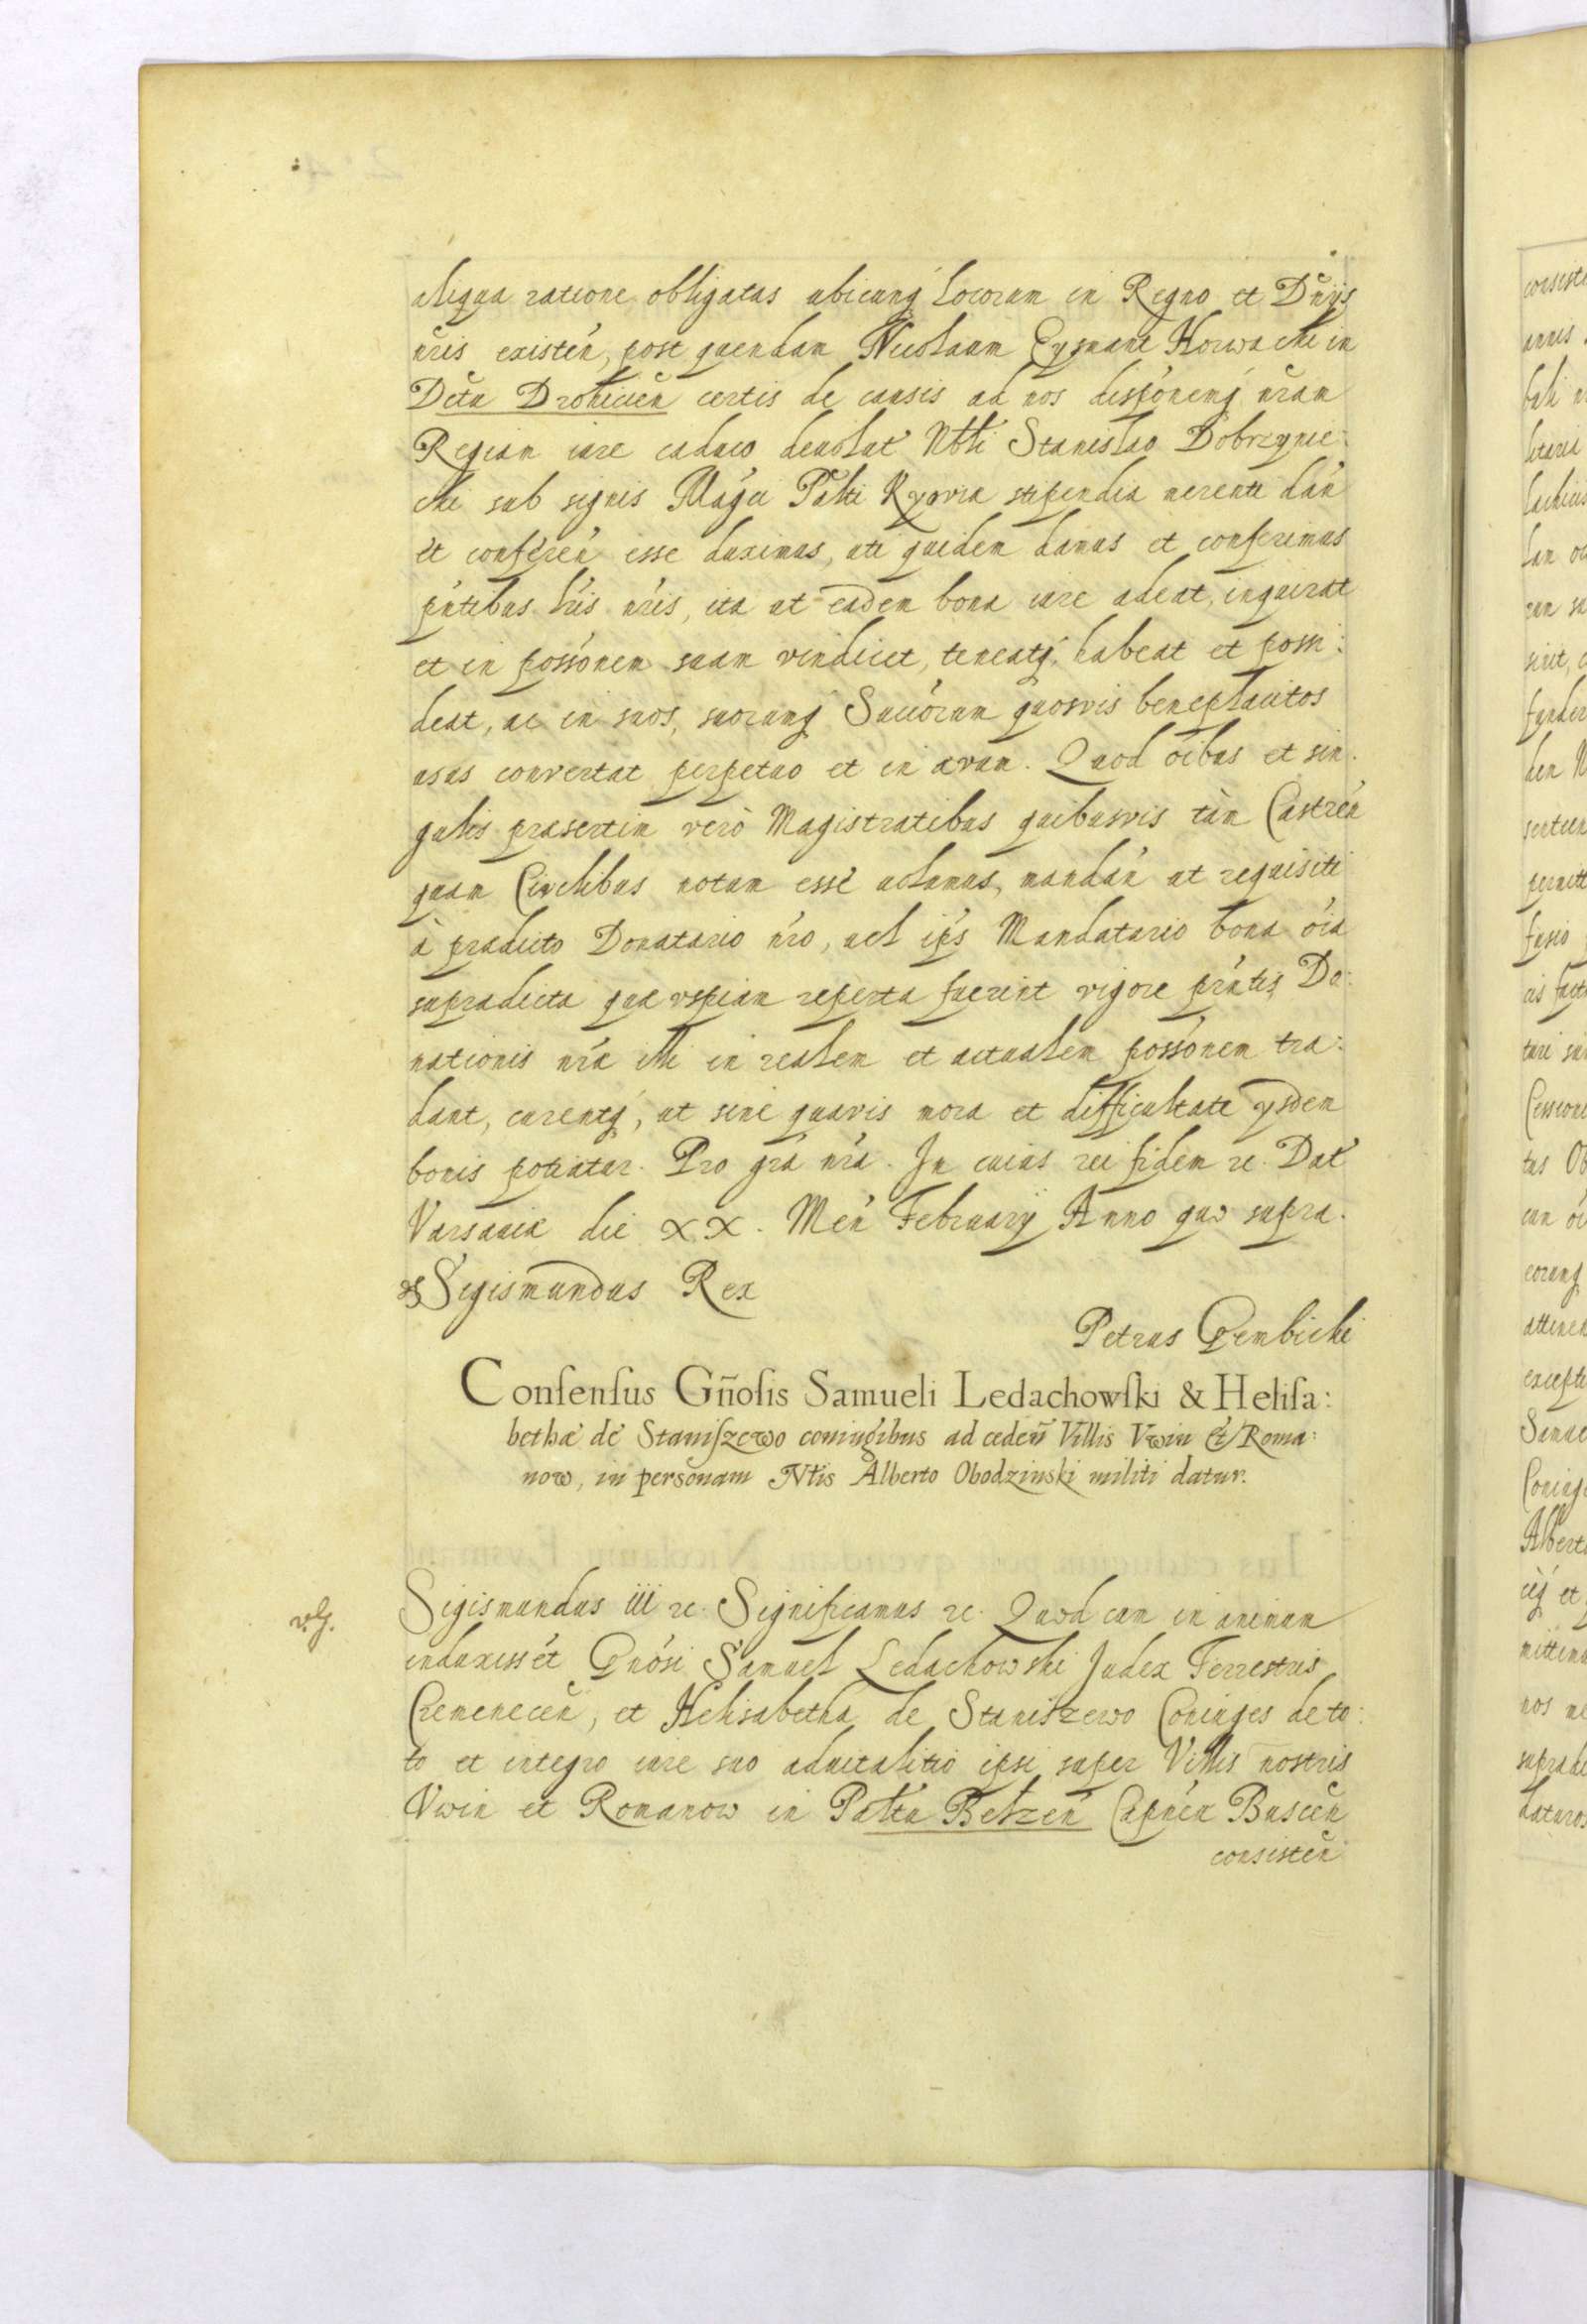 aliqua ratione obligatas ubicunq́ locorum in Regno et Dn̄ijs
nr̄is existeń, post quendam Nicolaum Eysmunt Horwacki in
Dctu Drohicień certis de causis ad nos disṕonemq́ nr̄am
Regiam iure caduco deuolut́ Nbli Stanislao Dobrzynie:
cki sub signis Mágci Palti Kyoviæ stipendia merenti dań
et confereń esse duximus, uti quidem damus et conferimus
pńtibus lŕis nŕis, ita ut eadem bona iure adeat, inquirat
et in possónem suam vendicet, teneatq́, habeat et possi:
deat, ac in suos, suorumq́ Succórum quosvis beneplacitos
usus convertat perpetuo et in ævum. Quod oībus et sin:
gulis præsertim verò Magistratibus quibusvis tàm Castreń
quam Civilibus notum esse uolumus, mandań ut requisiti
à prædicto Donatario nŕo, uel ip̄s Mandatario bona oía
supradicta quæ vspiam reperta fuerint vigore pŕntis Do:
nationis nŕæ illi in realem et actualem possónem tra:
dant, curentq́, ut sine quavis mora et difficultate ysdem
bonis potiatur. Pro grá nŕa. In cuius rei fidem ꝛc. Dat́
Varsauiæ die XX. Meń Februarij Anno quo supra.
Sigismundus Rex
Petrus Gembicki
Consensus Gn̄osis Samueli Ledachowski & Helisa:
bethæ de Staniszewo coniugibus ad cedeñ Villis Vwin & Roma:
now, in personam Ntis Alberto Obodzinski militi datur.
Sigismundus iii ꝛc. Significamus ꝛc. Quod cum in animum
induxisset Gnósi Samuel Ledachowski Judex Terrestris
Cremeneceń, et Helisabetha de Staniszewo Coniuges de to:
to et integro iure suo aduitalitio ipsi super Villis nostris
Vwin et Romanow in Paltu Belzeń Capneá Busceń
consisteń